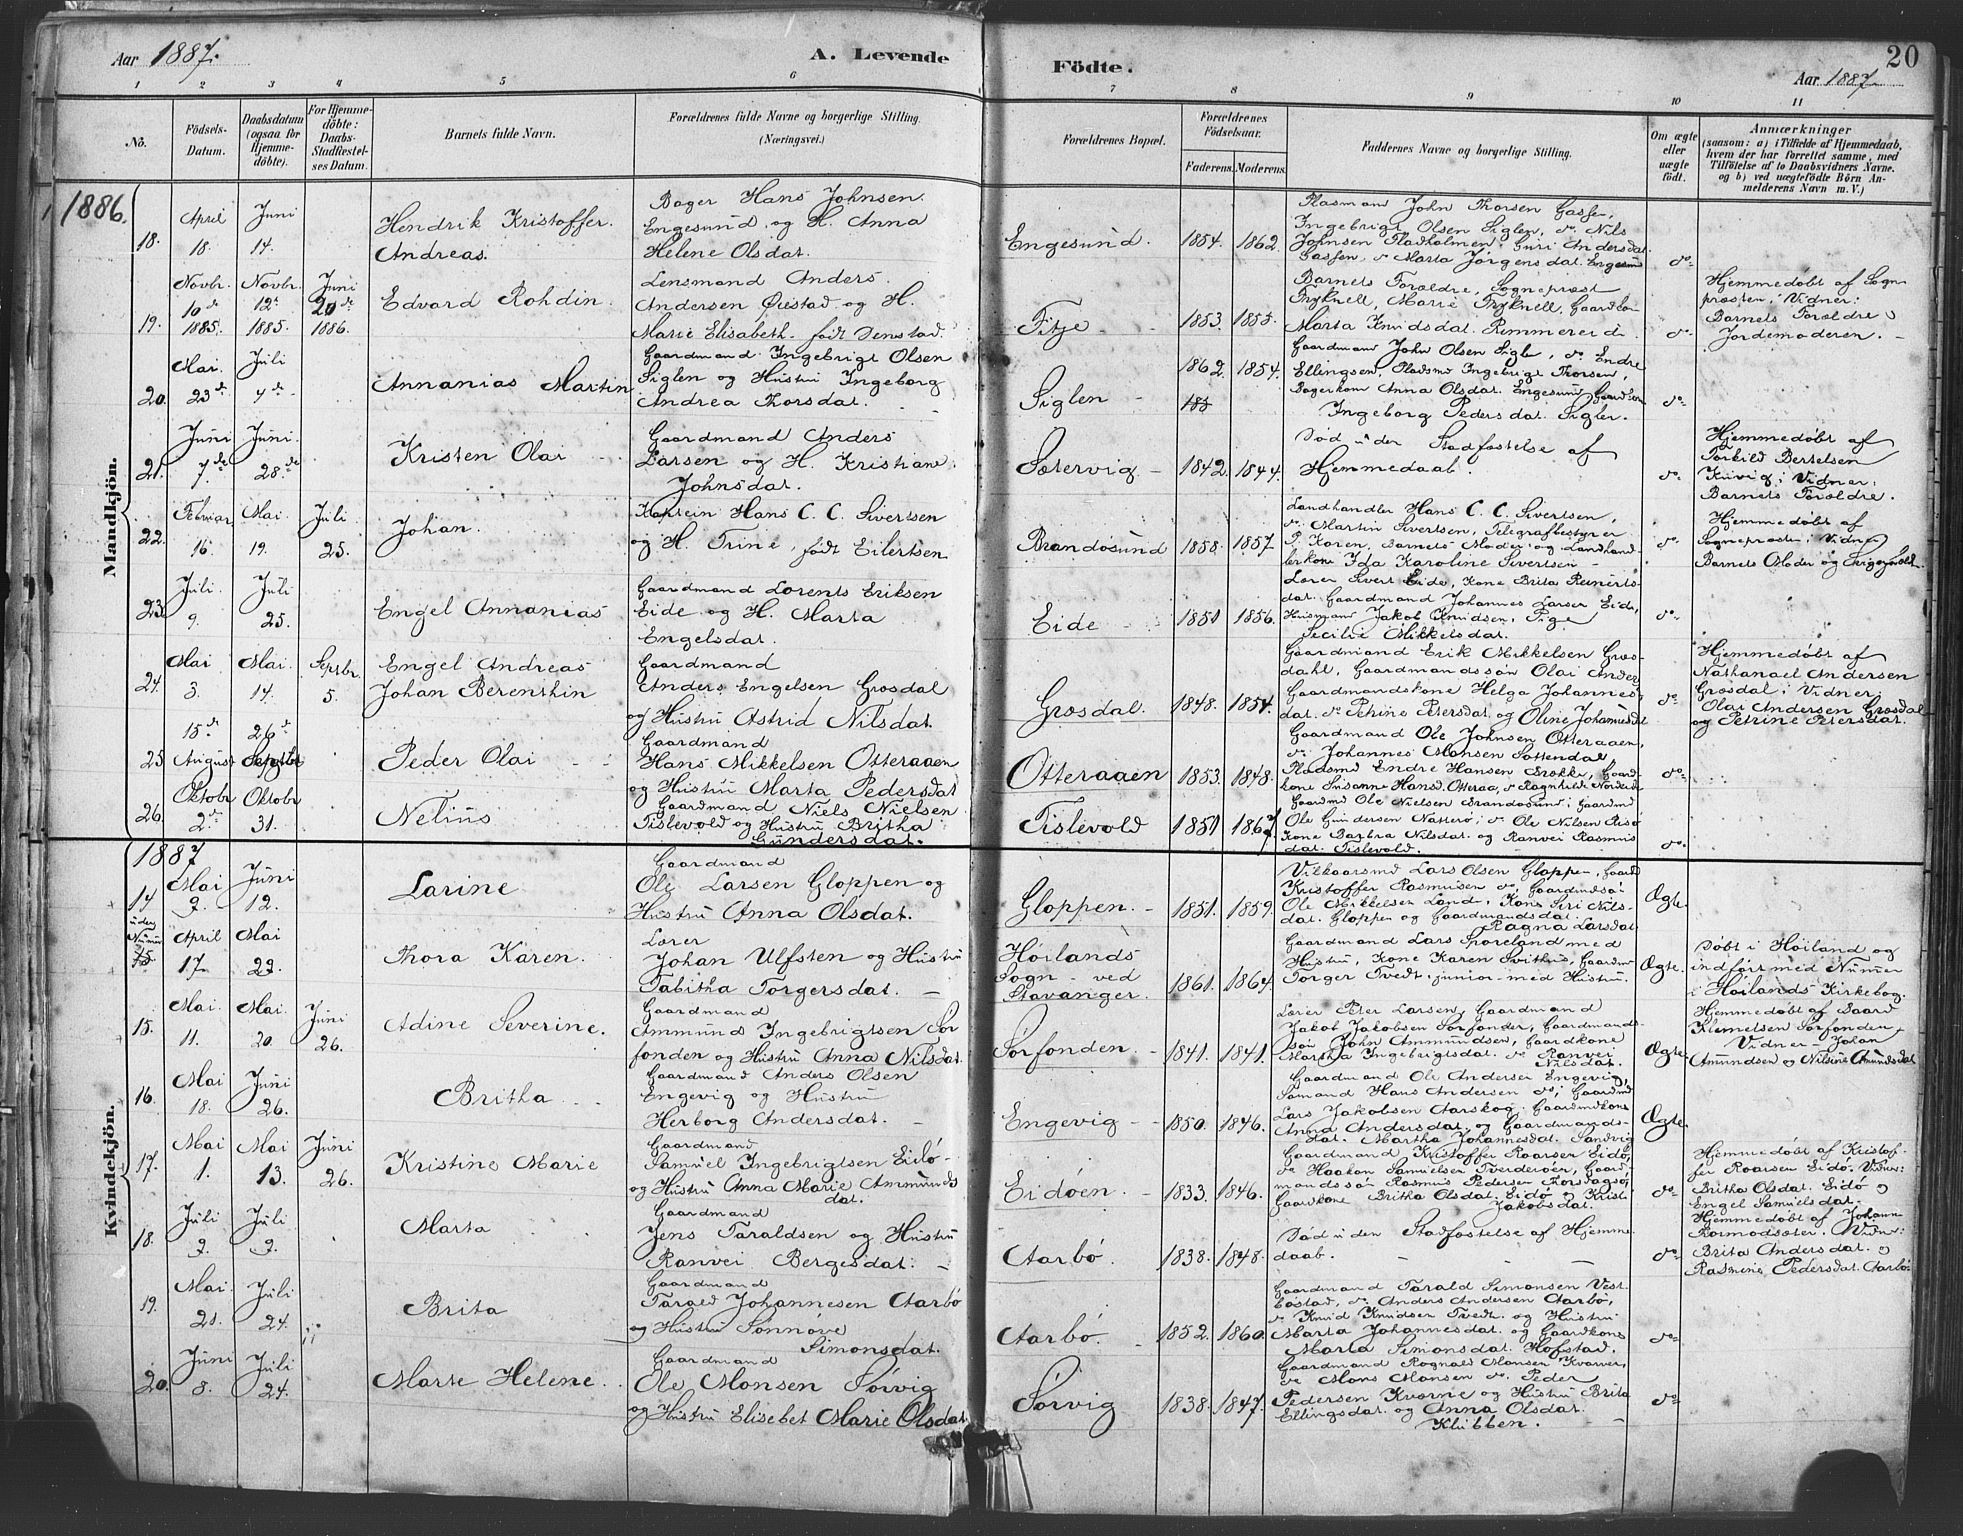 Aar 1887.
A. Levende
Födte.
20
Aar 1887
1 2 3 4 5 6 7 8 9 10 11
No.
Födsels-Datum.
Daabsdatum (ogsaa for Hjemme-döbte).
For Hjemme-döbte: Daabs-Stadfæstel-ses Datum.
Barnets fulde Navn.
Forældrenes fulde Navne og borgerlige Stilling.
(Næringsvei.)
Forældrenes Bopæl.
Forældrenes Födselsaar.
Faderens. Moderens.
Faddernes Navne og borgerlige Stilling.
Om ægte eller uægte födt.
Anmærkninger
(saasom: a) i Tilfælde af Hjemmedaab,
hvem der har forrettet samme, med
Tilföielse af to Daabsvidners Navne.
og b) ved uægtefödte Börn An-
melderens Navn m. V.)
Mandkjön.
1886.
18. April 18. Juni 14.
Hendrik Kristoffer.
Andreas.
Bager Hans Johnsen
Engesund, og H. Anna
Helene Olsdat.
Engesund. 1854. 1862.
Plasmand John Thorsen
Ingebrigt Olsen Siglen, do Nils
Johnsen Fladholmen, Guri Andersdat
Marta Jørgensdat. Engesund
do
19. Novbr. 10de 1885. Novbr. 12te 1885. Juni 20de 1886.
Edvard Rohdin.
Lensmand Anders
Andersen Ørestad og H.
Marie Elisabeth. født
Fitje 1853. 1855.
Barnets Forældre, Sogneprest
Marta Knudsdat. Rimmereid.
do
Hjemmedøbt af Sogne
præsten; Vidner:
Barnets Forældre
Jordemoderen.
20. Mai 23de Juli 4de
Annanias Martin
Gaardmand Ingebrigt Olsen
Siglen og Hustru Ingeborg
Andrea Thorsdat.
Siglen 1862. 1854.
Gaardmand John Olsen Sigle, do Endre
Ellingsen, Pladsmd Ingebrigt Thorsen
Bagerkone Anna Olsdat. Engesund,
Ingeborg Pedersdat Siglen.
do
21. Juni 7de Juni 28de
Kristen Olai
Gaardmand Anders
Larsen og H. Kristiane
Johnsdat.
Sætervig 1842. 1844.
Død uden Stadfæstelse af
Hjemmedaab.
do
Hjemmedøbt af
Torkild Bertelsen
Vidner:
Barnets Forældre.
22. Februar 16. Mai 19. Juli 25.
Johan.
Kaptein Hans C. C. Sivertsen
og H. Trine, født Eilertsen
Brandøsund 1858. 1857
Landhandler Hans C. C. Sivertsen,
do Martin Sivertsen, Telegrafbestyrer
P. Koren, Barnets Moder og Landhand-
lerkone Ida Karoline Sivertsen
do
Hjemmedøbt af
Sognepresten; Vidner
Barnets Moder og
23. Juli 9. Juli 25.
Engel Annanias
Gaardmand Lorents Eriksen
Eide og H. Marta
Engelsdat.
Eide 1851 1856.
Lærer Sivert Eide, Kone Brita Reinerts-
dat. Gaardmand Johannes Larsen Eide,
Husmand Jakob Knudsen, Pige
Secilie Mikkelsdat.
do
24. Mai 3. Mai 14. Septbr 5.
Engel Andreas
Johan Berenthin
Gaardmand
Anders Engelsen Grøsdal
og Hustru Astrid Nilsdat.
Grøsdal 1848. 1854.
Gaardmand Erik Mikkelsen Grøs-
dahl, Gaardmandssøn Olai Ander
Gaardmandskone Helga Johannes-
dat. do Petrine Petersdat. og Oline Johannesdat
do
Hjemmedøbt af
Nathanael Andersen
Grøsdal; Vidner
Olai Andersen Grøsdal
og Petrine Petersdat.
25 15de August 26de Septbr
Peder Olai
Gaardmand
Hans Mikkelsen Otteraaen
og Hustru Marta Pedersdat
Otteraaen 1853. 1848.
Gaardmand Ole Johnsen Otteraaen,
do Johannes Monsen Sottendal
Pladsmd Endre Hansen
kone Susanne Hansd. Otteraa, do Ragnhilde
do
26. Oktobr 2de Oktobr 31.
Nelius
Gaardmand Niels Nielsen
Tislevold og Hustru Britha
Gundersdat.
Tislevold 1851 1867.
Gaardmd Ole Nielsen Brandøsund; Gaardmd
Ole Gundersen Natterø; do Ole Nilsen Risø
Kone Barbra Nilsdat og Ranvei Rasmus
dat. Tislevold.
do
Kvindekjön.
1887
14 Mai 2. Juni 12.
Larine
Gaardmand
Ole Larsen Gloppen og
Hustru Anna Olsdat.
Gloppen. 1851. 1859.
Vilkaarsmd Lars Olsen Gloppen, Gaardm
Kristoffer Rasmusen do, Gaardmdsøn
Ole Mikkelsen Lond, Kone Siri Nils-
dat. Gloppen og Gaardmandsdat.
Ragna Larsdat
Ægte.
uden Numer April 17 Mai 22.
Thora Karen.
Lærer
Johan Ulfsten og Hustru
Tabitha Torgersdat.
Høilands
Sogn ved
Stavanger. 1861. 1864.
Gaardmand Lars Sporeland med
Hustru, Kone Karen Svithus, Gaardm
Torger Tvedt junior med Hustru.
Ægte.
Døbt i Høiland og
indført med Numer
i Høilands Kirkebog.
15. Mai 11. Mai 20. Juni 26.
Adine Severine.
Gaardmand
Ammund Ingebrigtsen Sør
fonden og Hustru Anna Nilsdat.
Sørfonden. 1841. 1841.
Lærer Peter Larsen, Gaardmand
Jakob Jakobsen Sørfonden, Gaardmands-
søn John Ammundsen, Gaardkone
Martha Ingebrigtsdat. do Ranvei
Nilsdat.
Ægte
Hjemmedøbt af Baard
Klemetsen Sørfonden
Vidner - Johan
Amundsen og Nilsine Amundsdat
16. Mai 18. Juni 26.
Britha
Gaardmand Anders Olsen
Engevig og Hustru
Herborg Andersdat.
Engevig 1850. 1846.
Gaardmand Ole Andersen Engevig,
Sømand Hans Andersen do; Gaardmd
Lars Jakobsen Aarskog, Gaardmdkone
Anna Andersdat. og Gaardmands-
dat. Martha Johannesdat. Sandvig
Ægte.
17. Mai 1. Mai 13. Juni 26.
Kristine Marie
Gaardmand
Samuel Ingebrigtsen Eidø
og Hustru Anna Marie Ammunds
dat.
Eidøen. 1833. 1846.
Gaardmand Kristoffer Roarsen Eidø,
do Haakon Samuelsen Tverderøer, Gaard-
mandssøn Rasmus Pedersen
Gaardkone Britha Olsdat. Eidø og Kristi
Jakobsdat.
do
Hjemmedøbt af Kristof-
fer Roarsen Eidø. Vidner:
Britha Olsdat. Eidø og
Engel Samuelsdat.
18. Juli 2. Juli 9.
Marta
Gaardmand
Jens Taraldsen og Hustru
Ranvei Bergesdat.
Aarbø. 1838. 1848.
Død uden Stadfæstelse af Hjemme
daab.
do
Hjemmedøbt af Johann
Vidner:
Brita Andersdat. og
Rasmine Pedersdat. Aarbø.
19. Mai. 21. Juli 24.
Brita
Gaardmand
Targed Johannesen Aarbø
og Hustru Sønnøve
Simonsdat.
Aarbø. 1852. 1860.
Gaardmand Tarald Simonsen Vest
bøstad, do Anders Andersen Aarbø,
do Knud Knudsen Tvedt og Hustru
Marta Johannesdat. og Gaardkone
Marta Simonsdat. Hofstad.
do
20. Juni 8. Juli 24.
Marte Helene.
Gaardmand
Ole Monsen Sørvig
og Hustru Elisebet Marie Olsdat
Sørvig 1838. 1847.
Gaardmand Rognald Monsen Kvarve,
do Mons Monsen do Peder
Pedersen Kværne og Hustru Brita
Ellingsdat. og Anna Olsdat.
Klubben.
do